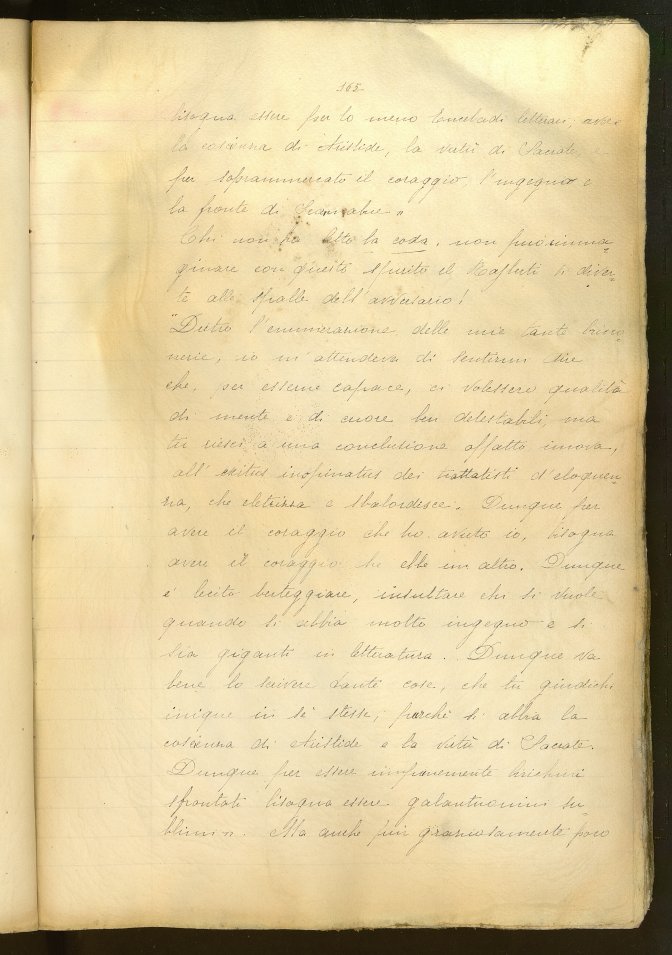 165
bisogna essere per lo meno Enceladi letterari, aver
la coscienza di Aristide, la virtù di Socrate,
per soprammercato il coraggio, l'ingegno e
la fronte di "
Chi non ha letto la coda, non può imma-
ginare con quanto spirito il si diver-
te alle spalle dell'avversario!
"Dietro l'enumerazione delle mie tante bricco-
nerie, io m'attendeva di sentirmi dire
che, per esserne capace, ci volessero qualità
di mente e di cuore ben detestabili, ma
tu riesci a una conclusione affatto nuova,
all'exitus inopinatus dei trattatisti d'eloquen-
za, che elettrizza e sbalordisce. Dunque per
avere il coraggio che ho avuto io, bisogna
avere il coraggio che ebbe un altro. Dunque
è lecito berteggiare, insultare chi si vuole
quando si abbia molto ingegno e si
sia giganti in letteratura. Dunque va
bene lo scrivere tante cose, che tu giudichi
inique in sè stesse, perchè si abbia la
coscienza di Aristide e la virtù di Socrate.
Dunque per essere impunemente birichini
sfrontati bisogna essere galantuomini su
blimi". Ma anche più graziosamente poco